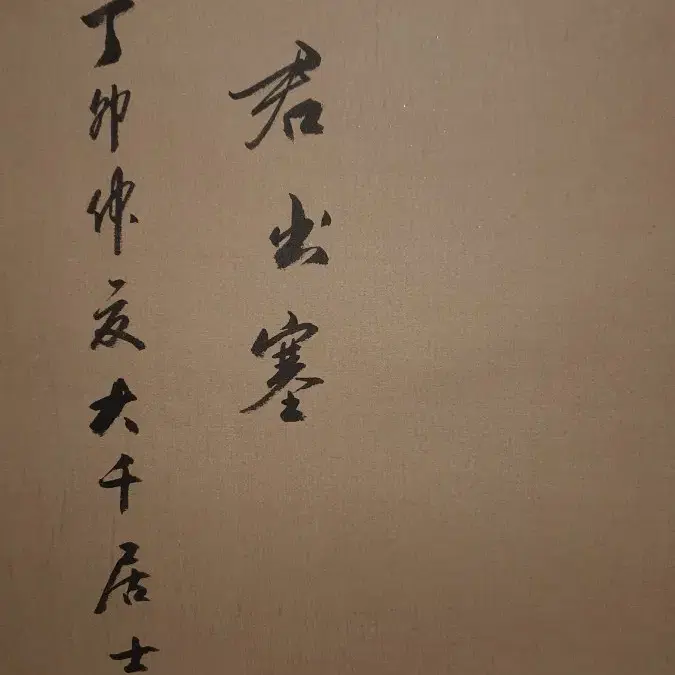 君出塞
丁卯仲夏大千居士